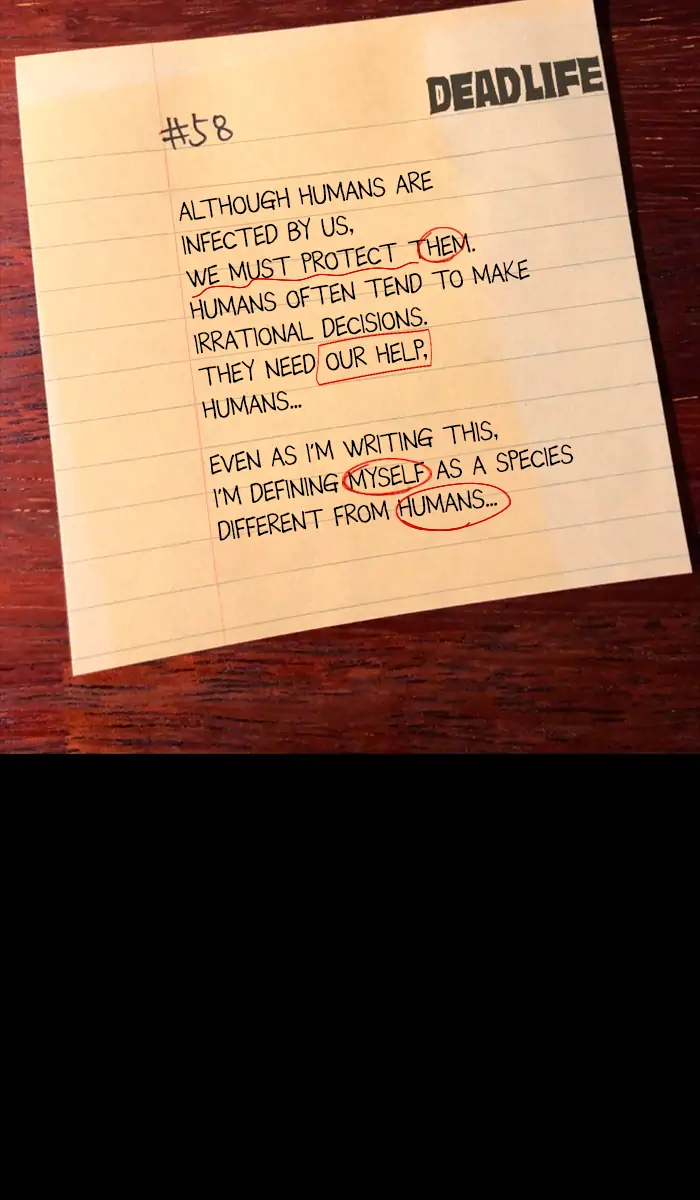 DEAD LIFE
#58
ALTHOUGH HUMANS ARE
INFECTED BY US,
WE MUST PROTECT THEM.
HUMANS OFTEN TEND TO MAKE
IRRATIONAL DECISIONS.
THEY NEED OUR HELP,
HUMANS...
EVEN AS I'M WRITING THIS,
I'M DEFINING MYSELF AS A SPECIES
DIFFERENT FROM HUMANS...